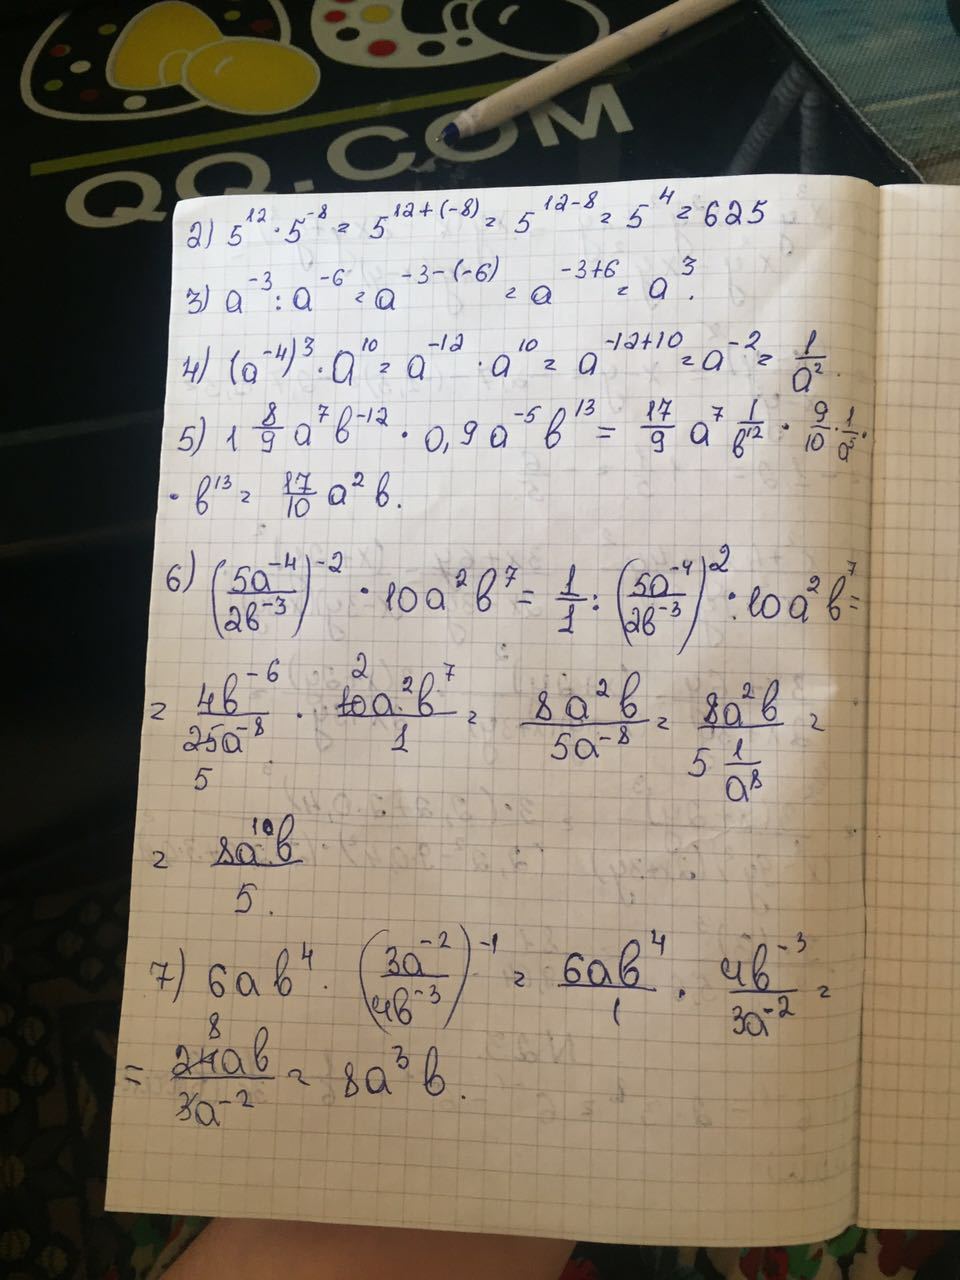 QQ.COM
2) 5^12 · 5^-8 = 5^12+(-8) = 5^12-8 = 5^4 = 625
3) a^-3 : a^-6 = a^-3-(-6) = a^-3+6 = a^3.
4) (a^-4)^3 · a^10 = a^-12 · a^10 = a^-12+10 = a^-2 = 1/a^2.
5) 1 8/9 a^7 b^-12 · 0,9 a^-5 b^13 = 17/9 a^7 1/b^12 · 9/10 · 1/a^5 ·
· b^13 = 17/10 a^2 b.
6) (5a^-4/2b^-3)^-2 · 10a^2b^7 = 1/1 : (5a^-4/2b^-3)^2 · 10a^2b^7 =
= 4b^-6/25a^-8 5 · 2 10a^2b^7/1 = 8a^2b/5a^-8 = 8a^2b/5 1/a^8 =
= 8a^10b/5.
7) 6ab^4 · (3a^-2/4b^-3)^-1 = 6ab^4/1 · 4b^-3/3a^-2 =
= 8 24ab/3a^-2 = 8a^3b.